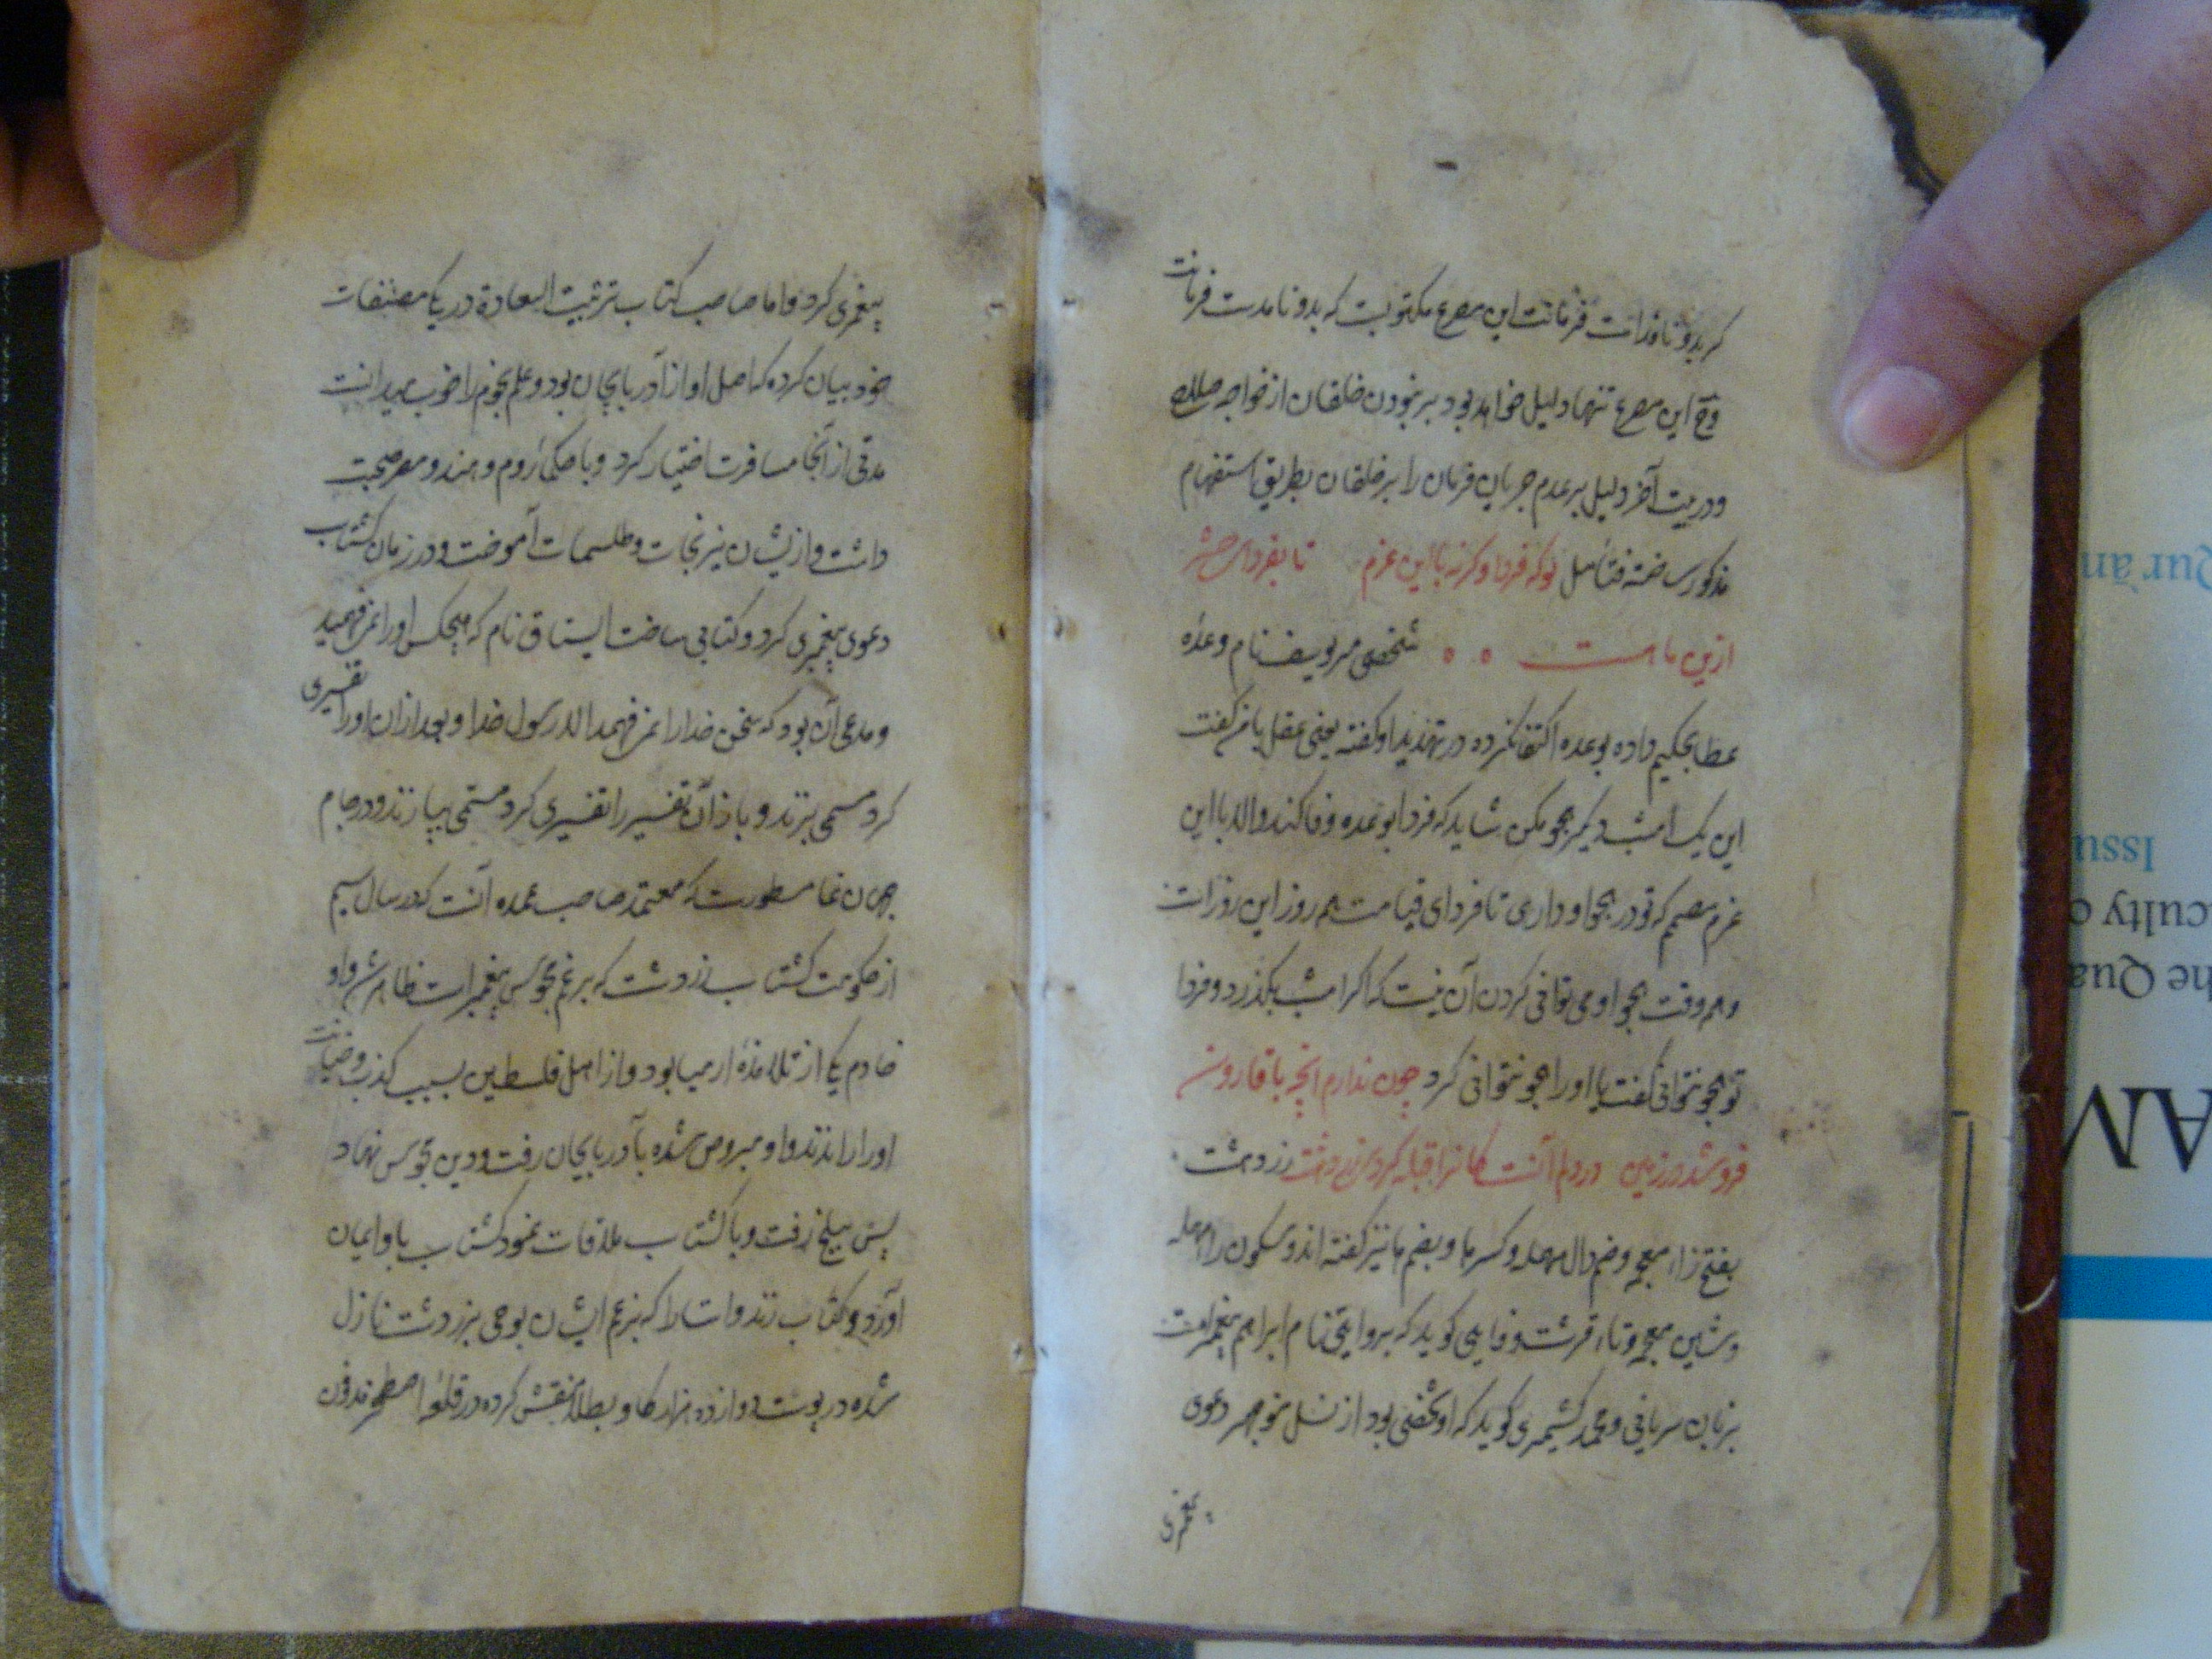 که بدو نافذ است فرمانت این مصرع مکتوبست که بدو نامدست فرمانت
وح این مصرع تنها دلیل خواهد بود بر نبودن خلقان از خواجه
و در بیت آخر دلیل بر عدم جریان فرمان را بر خلقان بطریق استفهام
مذکور ساخته فتأمل گو که فردا وگرنه با این عزم تا بفردای حشر
ازین ماست شخصی مر یوسف نام وعده
عطا بحکیم داده بوعده اکتفا نکرده در تهدید او گفته یعنی عقل با من گفت
این یک امشب دیگر هجو مکن شاید که فردا بوعده وفا کند والا با این
عزم مصمم که تو در هجو او داری تا فردای قیامت هم روز این روز است
و هم وقت هجو او می توانی کردن آن نیست که اگر امشب بگذرد و فردا
تو هجو نتوانی گفت یا او را هجو نتوانی کرد چون ندارم آنچه با قارون
فرو شد در زمین در دلم آنست کانرا قبله کردی زردهشت زردهشت
بفتح زاء معجمه و ضم دال مهمله و کسر ها و بضم ها نیز گفته اند و سکون راء مهمله
و شین معجمه و تاء قرشت وفایی گوید که بروایتی نام ابراهیم پیغمبر است
بزبان سریانی و محمد کشمیری گوید که او شخصی بود از نسل منوچهر دعوی
پیغمبری کرد و اما صاحب کتاب ترتیب السعادة در یکی مصنفات
خود بیان کرده که اصل او از آذربایجان بود و علم نجوم را خوب میدانست
مدتی از آنجا مسافرت اختیار کرد و با حکماء روم و هند و مصر صحبت
داشت و ازیشان نیرنجات و طلسمات آموخت و در زمان گشتاسب
دعوی پیغمبری کرد و کتابی ساخت ایستاق نام که هیچکس او را نمی فهمید
و مدعی آن بود که سخن خدا را نمی فهمد الا رسول خدا و بعد از آن او را تفسیری
کرد مسمی بزند و باز آن تفسیر را تفسیری کرد مسمی بپازند و در جام
جهان نما مسطورست که معتمد صاحب عمده آنست که در سال سیم
از حکومت گشتاسب زردشت که بزعم مجوس پیغمبر است ظاهر شد و او
خادم یکی از تلامذه ارمیا بود و از اهل فلسطین بسبب کذب و خیانت
او را راندند و او مبروص شده بآذربایجان رفت و دین مجوس نهاد
پس ببلخ رفت و با گشتاسب ملاقات نمود گشتاسب باو ایمان
آورد و کتاب زند و استا را که بزعم ایشان بوحی بر زردشت نازل
شده در پوست دوازده هزار گاو بطلا نقش کرده در قلعه اصطخر مدفون